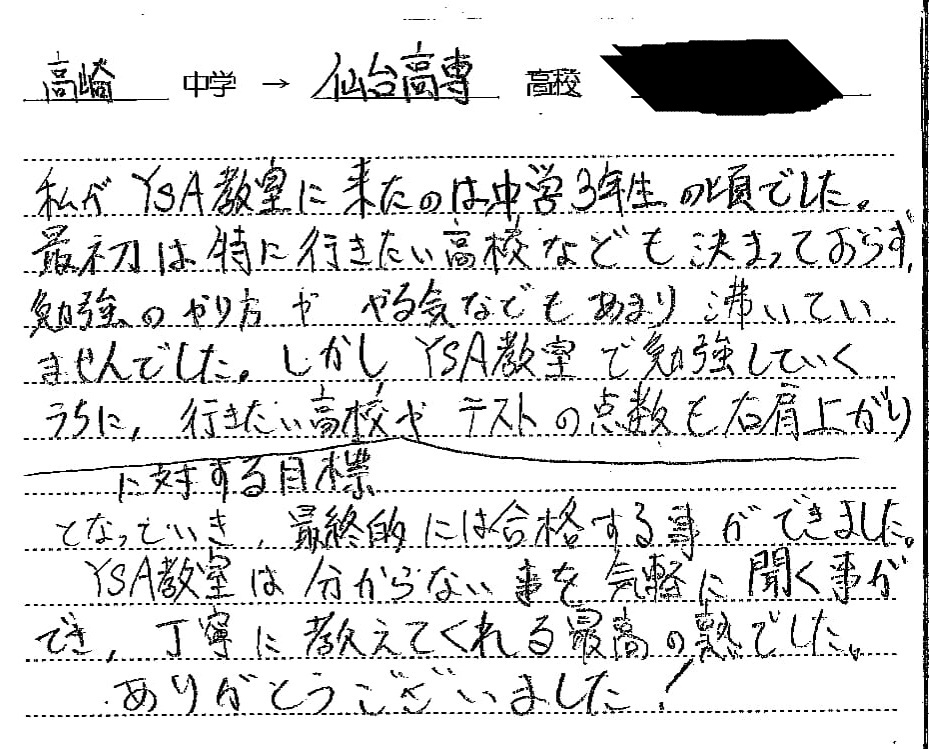 高崎 中学 → 仙台高専 高校
私が YSA教室に来たのは中学3年生の頃でした。
最初は特に行きたい高校なども決まっておらず、
勉強のやり方や やる気なでもあまり沸いてい
ませんでした。しかし YSA教室で勉強していく
うちに、行きたい高校や テストの点数も右肩上がり
に対する目標
となっていき、最終的には合格する事ができました。
YSA教室は分からない事を気軽に聞く事が
でき、丁寧に教えてくれる最高の塾でした。
ありがとうございました!